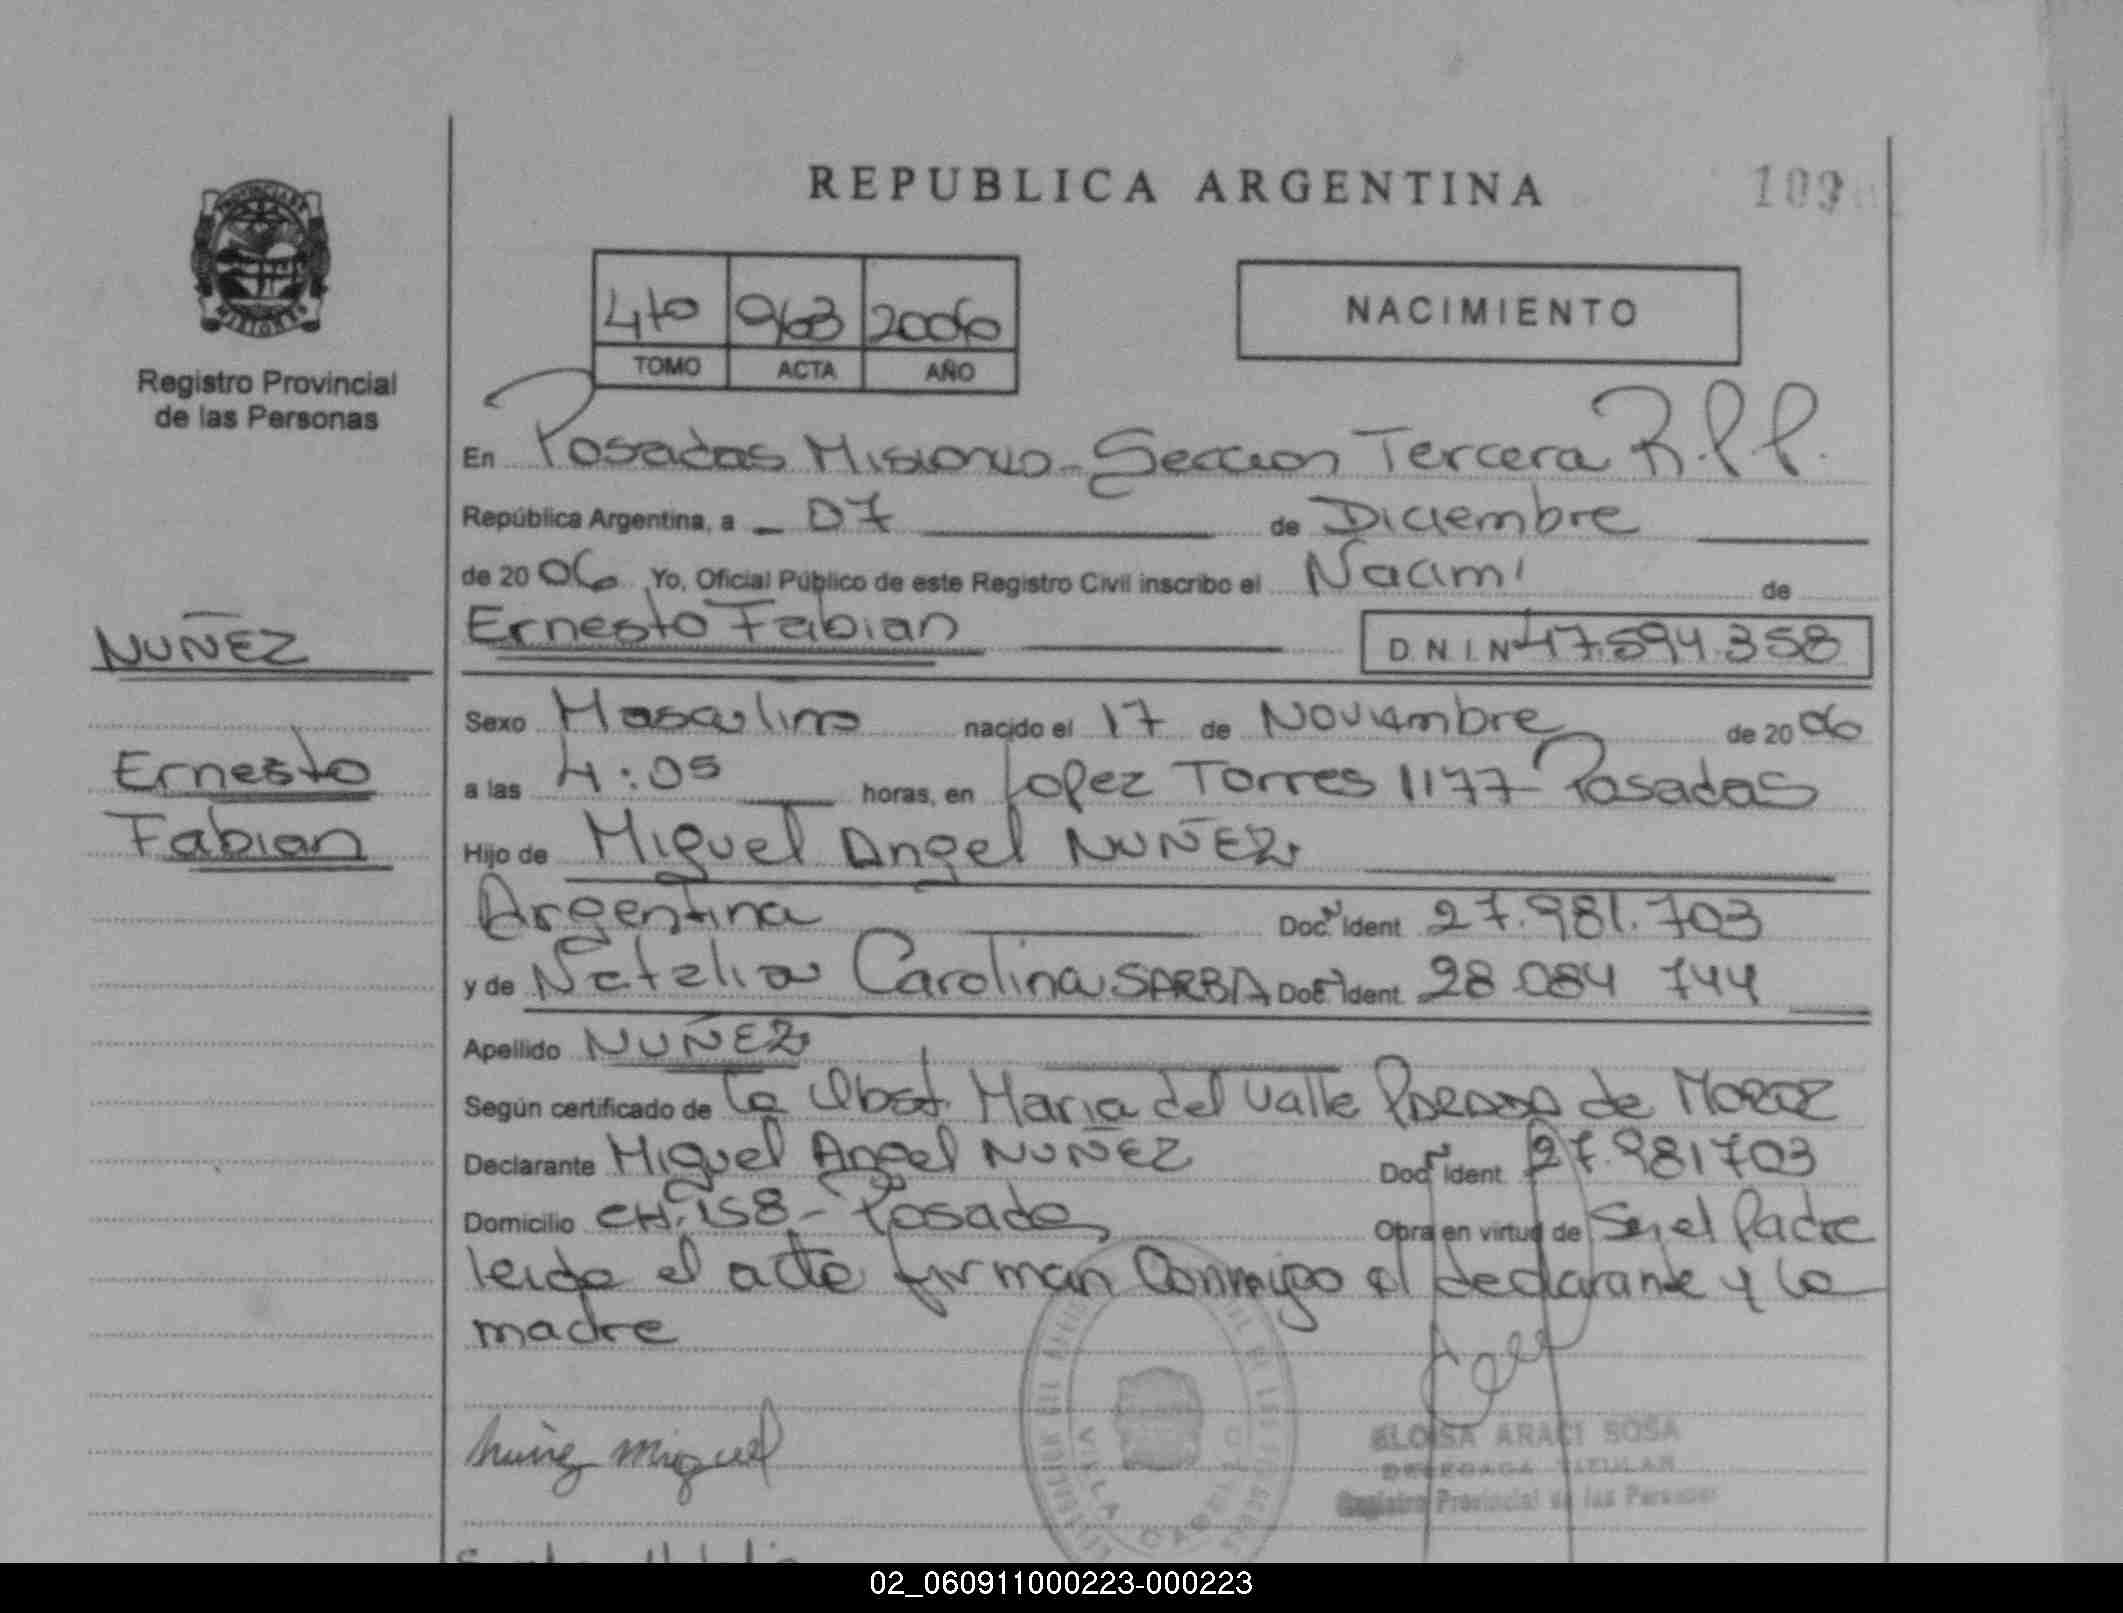 REPUBLICA ARGENTINA
109
4to 963 2006
TOMO ACTA AÑO
NACIMIENTO
Registro Provincial
de las Personas
En Posadas Misiones - Seccion Tercera R.P.P.
República Argentina, a 07 de Diciembre
de 20 06 Yo, Oficial Público de este Registro Civil inscribo el Nacimi de
Ernesto Fabian D.N.I.Nº 47.594.358
NUÑEZ
Ernesto
Fabian
Sexo Masculino nacido el 17 de Noviembre de 20 06
a las 4:05 horas, en Lopez Torres 1177 - Posadas
Hijo de Miguel Angel NUÑEZ
Argentina Doc. Ident 27.981.703
y de Natalia Carolina SARBA Doc. Ident. 28 084 744
Apellido NUÑEZ
Según certificado de la Obst. Maria del Valle de MOROZ
Declarante Miguel Angel NUÑEZ Doc. Ident. 27.981703
Domicilio CH. 158 - Posadas Obra en virtud de Ser el Padre
leida el acta firman Conmigo el declarante y la
madre
Nuñez Miguel
ELOISA ARACI SOSA
DELEGADA TITULAR
Registro Provincial de las Personas
VILLA CABELLO
02_060911000223-000223